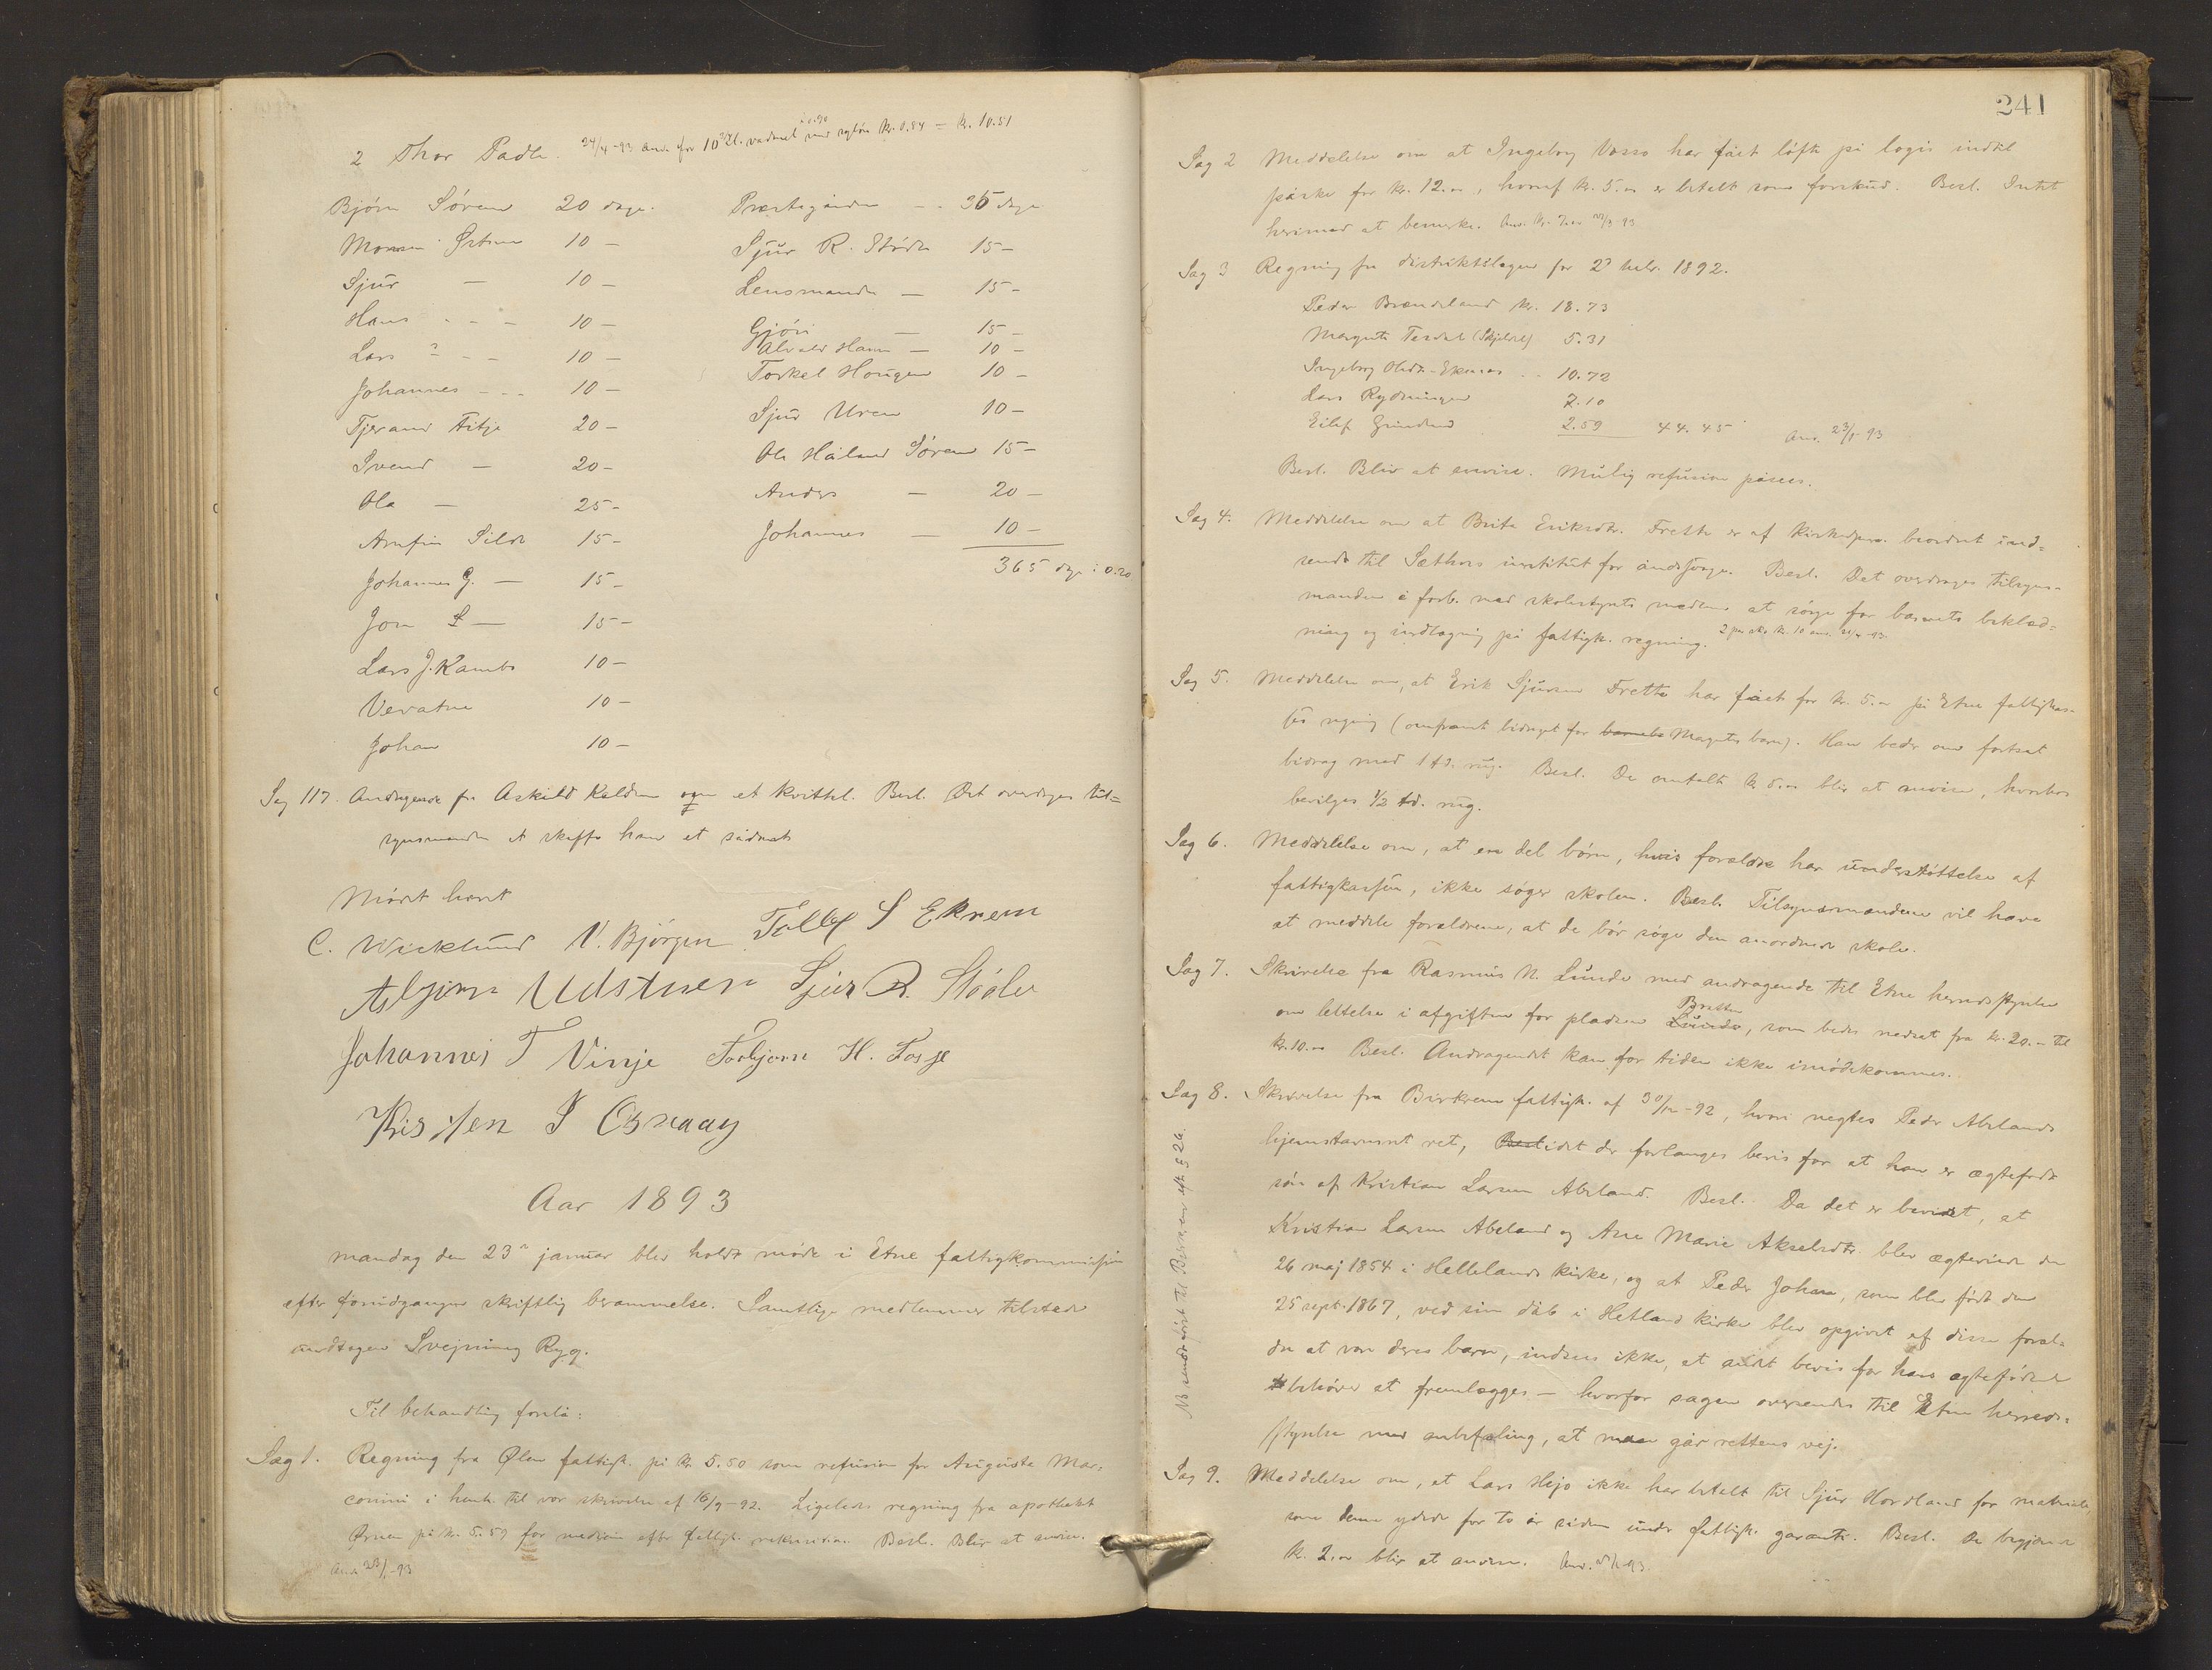 2 Thor Padle. 24/4-93 anv. for 10 al. vadmel med sytøi kr. 0.84 = kr. 10.51
Bjørn Søren 20 dage.
Monsen Østren 10 –
Sjur – 10 –
Hans - - - 10 –
Lars - - 10 –
Johannes - - - 10 –
Tjeran Fitje 20 –
Svend – 20 –
Ola – 25 –
Arnfin Silde 15 –
Johannes G. – 15 –
Jon S – 15 –
Lars J. Kambe 10 –
Vevatne 10 –
Johan 10 –
Præstegården - - 35 dage
Sjur R. Støle 15 –
Lensmanden – 15 –
Gjøri – 15 –
Alvald Hans – 10 –
Torkel Hougen 10 –
Sjur Uren 10 –
Ole Håland Søren 15 –
Anders – 20 –
Johannes – 10 –
365 dage : 0.20
Sag 117. Andragende fra Askild Kalden om et kvittel. Besl. Det overdrages til=
synsmanden at skaffe ham et sådant
Mødet hævet
C. Wicklund N. Bjørgen Tollef S Ekrem
Asbjørn Udstuen Sjur R. Støle
Johannes T Vinje Torbjørn H. Fosse
Kristen I Osnaag
Aar 1893
mandag den 23de januar blev holdt møde i Etne fattigkommission
efter forudgangen skriftlig berammelse. Samtlige medlemmer tilstede
undtagen Svejnung Ryg.
Til behandling forelå:
Sag 1. Regning fra Ølen fattigk. på kr. 5.50 som refusion for Auguste Mar=
conini i henh. til vor skrivelse af 16/9-92. Ligeledes regning fra apotheket
Ørnen på kr. 5.59 for medicin efter fattigk. rekvisition. Besl. Blir at anvise.
Anv. 23/1-93
241
Sag 2 Meddelelse om at Ingeborg Vasso har fået løfte på logis indtil
påske for kr. 12.00, hvoraf kr. 5.00 er betalt som forskud. Besl. Intet
herimod at bemerke. Anv. kr. 7.00 /3-93
Sag 3 Regning fra distriktslægen for 2det halv. 1892.
Peder Brændeland kr. 18.73
Margrete Tesdal (Skjelde) 5.31
Ingeborg Olsdtr. Ekenes - - 10.72
Lars Rydningen 7.10
Eilef Grindem 2.59 44.45 Anv. 23/1-93
Besl. Blir at anvise. Mulig refusion påsees.
Sag 4. Meddelelse om at Brita Eriksdtr. Frette er af kirkedep. beordret ind=
sendt til Sæthers institut for åndssvage. Besl. Det overdrages tilsyns=
manden i forb. med skolestyrets medlem at sørge for barnets beklæd=
ning og indlægning på fattigk. regning. 2 par sko kr. 10 anv. 24/4-93.
Sag 5. Meddelelse om, at Erik Sjursen Frette har fået for kr. 5.00 på Etne fattigkas=
ses regning (omframt bidraget for barnets Magretes barn). Han beder om fortsat
bidrag med 1 td. rug. Besl. De omtalte kr. 5.00 blir at anvise, hvorhos
bevilges 1/2 td. rug.
Sag 6. Meddelelse om, at en del børn, hvis forældre har understøttelse af
fattigkassen, ikke søger skolen. Besl. Tilsynsmændene vil have
at meddele forældrene, at de bør søge den anordnede skole.
Sag 7. Skrivelse fra Rasmus N. Lunde med andragende til Etne herredsstyrelse
om lettelse i afgiften for pladsen Lunde Bratten, som bedes nedsat fra kr. 20.– til
kr. 10.00 Besl. Andragendet kan for tiden ikke imødekommes.
Sag 8. Skrivelse fra Birkrem fattigk. af 30/12-92, hvori negtes Peder Abelands
hjemstavnsret ret, Besl idet der forlanges bevis for at han er ægtefødt
søn af Kristian Larsen Abeland. Besl. Da det er bevidst, at
Kristian Larsen Abeland og Ane Marie Akselsdtr. blev ægteviede den
26 maj 1854 i Hellelands kirke, og at Peder Johan, som blev født den
25 sept. 1867, ved sin dåb i Hetland kirke blev opgivet af disse foræl=
dre at være deres barn, indsees ikke, at andet bevis for hans ægtefødsel
behøver at fremlægges – hvorfor sagen oversendes til Etne herreds=
styrelse med anbefaling, at man går rettens vej.
Sag 9. Meddelelse om, at Lars Hejo ikke har betalt til Sjur Hordland for materiale,
som denne ydede for to år siden under fattigk. garanti. Besl. De begjærede
kr. 2.00 blir at anvise. Anv. /1-93.